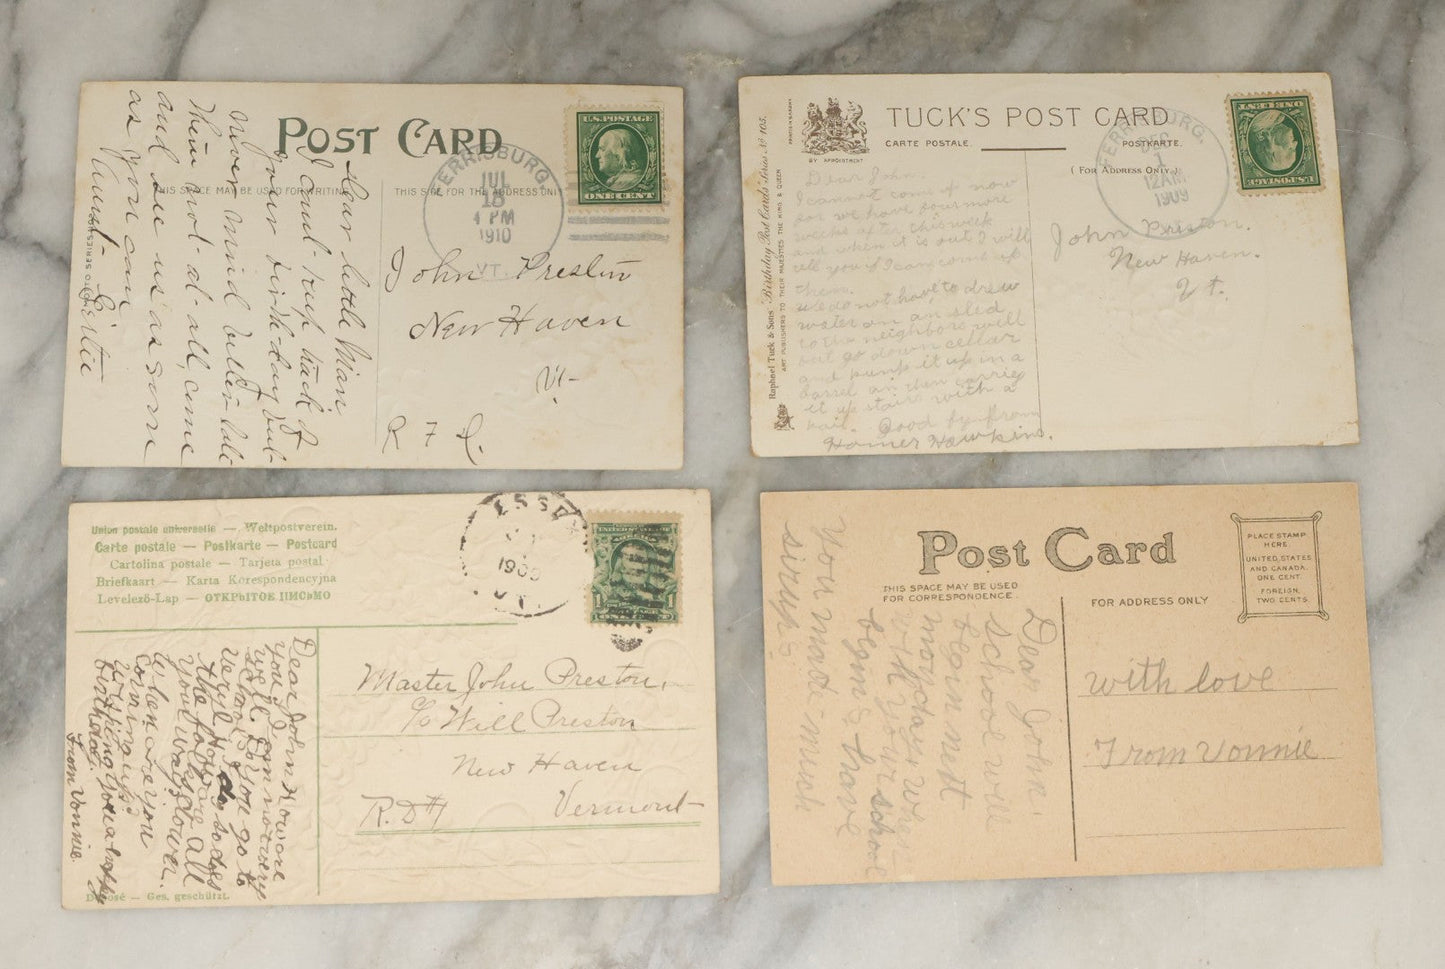 POST CARD
THIS SPACE MAY BE USED FOR WRITING
THIS SIDE FOR THE ADDRESS ONLY
U.S. POSTAGE
ONE CENT
FERRISBURG,
JUL
18
4 PM
1910
VT.
Dear little Man
I can't keep track of
your birthday but
never mind better late
than not at all, come
and see us as soon
as you can
Aunt Gertie
John Preston
New Haven
Vt-
R F D
TUCK'S POST CARD
CARTE POSTALE.
POSTKARTE.
BY APPOINTMENT
( FOR ADDRESS ONLY. )
Raphael Tuck & Sons' "Birthday" Post Cards Series No 105.
ART PUBLISHERS TO THEIR MAJESTIES THE KING & QUEEN
U.S. POSTAGE
ONE CENT
FERRISBURG.
DEC
1
12 AM
1909
Dear John
I cannot come up now
for we have four more
weeks after this week
and when it is out I will
tell you if I can come up
then.
we do not have to drew
water on an sled
to the neighbors will
but go down cellar
and pump it up in a
barrel an then carrie
it up stairs with a
pail. Good by from
Homer Hawkins.
John Preston.
New Haven.
Vt.
Union postale universelle — Weltpostverein.
Carte postale — Postkarte — Postcard
Cartolina postale — Tarjeta postal
Briefkaart — Karta Korespondencyjna
Levelező-Lap — ОТКРЫТОЕ ПИСЬМО
1909
ONE CENT
Dear John How are
you I am not very
well. Do you go to
school
the folks all
your way
when are you
coming up?
birthday.
From Vonnie.
Master John Preston,
c/o Will Preston
New Haven
R.D #1 Vermont
Déposé — Ges. geschützt.
Post Card
THIS SPACE MAY BE USED
FOR CORRESPONDENCE
FOR ADDRESS ONLY
PLACE STAMP
HERE
UNITED STATES
AND CANADA,
ONE CENT
FOREIGN,
TWO CENTS
Dear John,
school will
begin next
monday. when
will your school
begin? have
you made much
sirup?
with love
From Vonnie